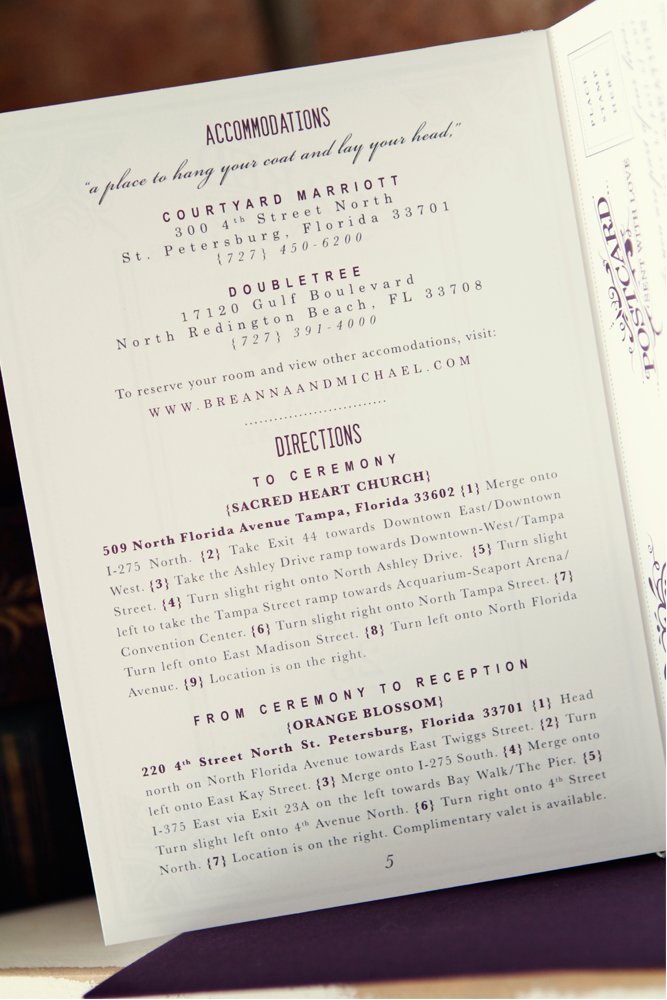 ACCOMMODATIONS
"a place to hang your coat and lay your head,"
COURTYARD MARRIOTT
300 4th Street North
St. Petersburg, Florida 33701
{727} 450-6200
DOUBLETREE
17120 Gulf Boulevard
North Redington Beach, FL 33708
{727} 391-4000
To reserve your room and view other accomodations, visit:
WWW.BREANNAANDMICHAEL.COM
DIRECTIONS
TO CEREMONY
{SACRED HEART CHURCH}
509 North Florida Avenue Tampa, Florida 33602 {1} Merge onto
I-275 North. {2} Take Exit 44 towards Downtown East/Downtown
West. {3} Take the Ashley Drive ramp towards Downtown-West/Tampa
Street. {4} Turn slight right onto North Ashley Drive. {5} Turn slight
left to take the Tampa Street ramp towards Acquarium-Seaport Arena/
Convention Center. {6} Turn slight right onto North Tampa Street. {7}
Turn left onto East Madison Street. {8} Turn left onto North Florida
Avenue. {9} Location is on the right.
FROM CEREMONY TO RECEPTION
{ORANGE BLOSSOM}
220 4th Street North St. Petersburg, Florida 33701 {1} Head
north on North Florida Avenue towards East Twiggs Street. {2} Turn
left onto East Kay Street. {3} Merge onto I-275 South. {4} Merge onto
I-375 East via Exit 23A on the left towards Bay Walk/The Pier. {5}
Turn slight left onto 4th Avenue North. {6} Turn right onto 4th Street
North. {7} Location is on the right. Complimentary valet is available.
5
PLACE
STAMP
HERE
POSTCARD...
WITH LOVE